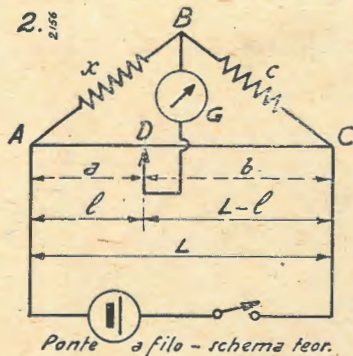 2. 2156
B
x
c
G
A
D
C
a
b
l
L-l
L
Ponte a filo - schema teor.